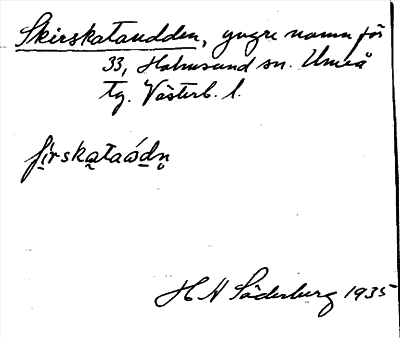 Skirskataudden, yngre namn för
33, Holmsund sn. Umeå
tg. Västerb. l.
fi̱rska̱taóḏn̥
H N Söderberg 1935